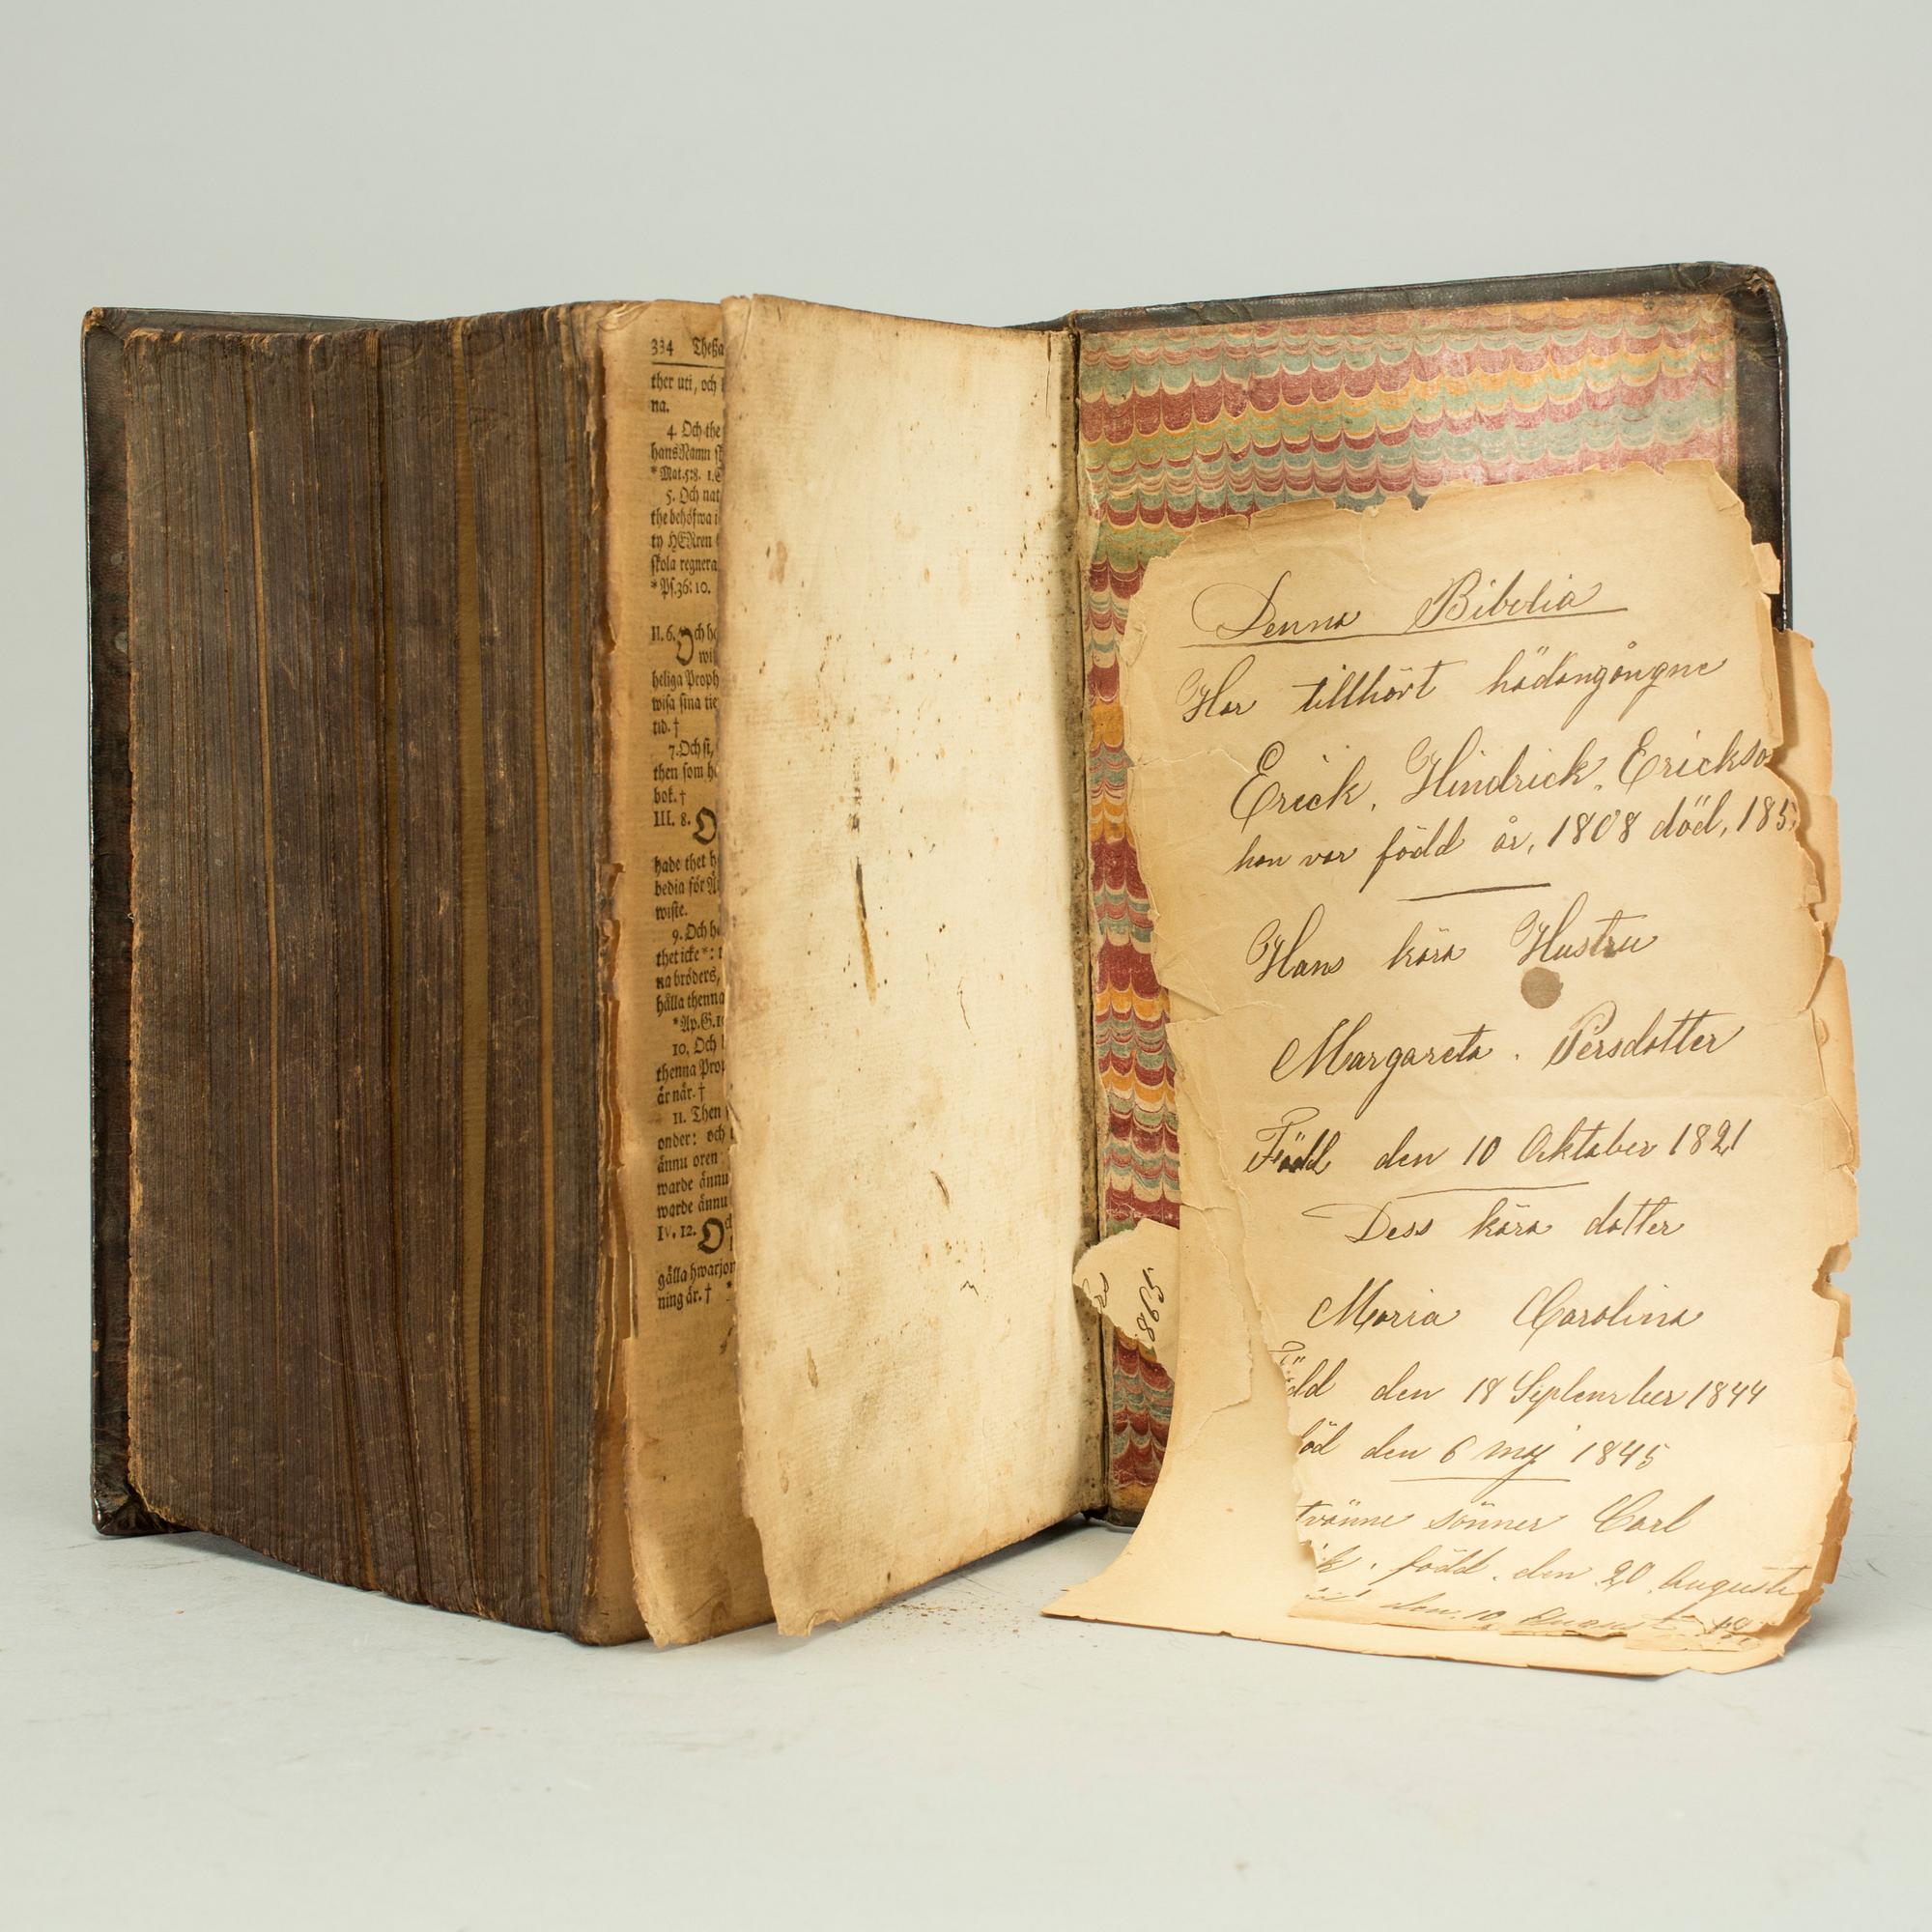 334 Theßa
ther uti, och
na.
4. Och the
hans Namn
*Mat.5:8. 1.
5. Och nat
the behöfwa i
ty HERren
skola regnera
*Ps.36: 10.
II. 6. Och h
wi
heliga Proph
wisa sina tie
tid.†
7. Och si,
then som h
bok.†
III. 8. O
hade thet h
bedia för
wiste.
9. Och h
thet icke*:
na bröders,
hålla thenna
*Ap.G.1
10. Och
thenna Prop
är när.†
11. Then
onder: och
ännu oren
warde ännu
warde ännu
IV. 12. Och
gälla hwarjom
ning är.†
Denna Bibelia
Har tillhört hädangångne
Erick. Hindrick. Erickso
han var född år, 1808 död, 185
Hans kära Hustru
Margareta. Persdotter
Född den 10 Oktober 1821
Dess kära dotter
Maria Carolina
Född den 18 September 1844
öd den 6 maj 1845
tvänne sönner Carl
ik. född. den 20 Augusti
den 10 August
865